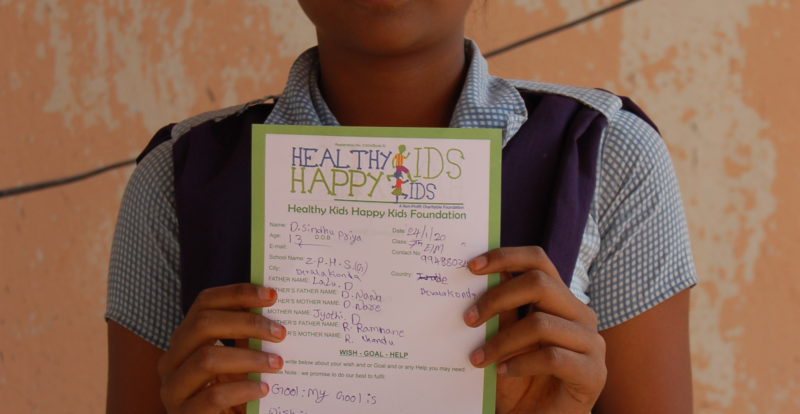 HEALTHY KIDS
HAPPY KIDS
A Non Profit Charitable Foundation
Healthy Kids Happy Kids Foundation
Name: D. Sindhu Priya Date: 24/1/20
Age: 13 D.O.B Class: 7th E/M
E-mail: Contact No:
School Name: Z.P.H.S.(G) 99488034
City: Devarakonda Country:
FATHER NAME: Lalu. D Devarakonda
FATHER NAME: D. Nana
MOTHER NAME:
MOTHER NAME: Jyothi. D
FATHER NAME: R. Ramnane
MOTHER NAME: R. Nandu
WISH - GOAL - HELP
write below about your wish and or Goal and or any Help you may need
Note : we promise to do our best to fulfil
Gool : My Gool is